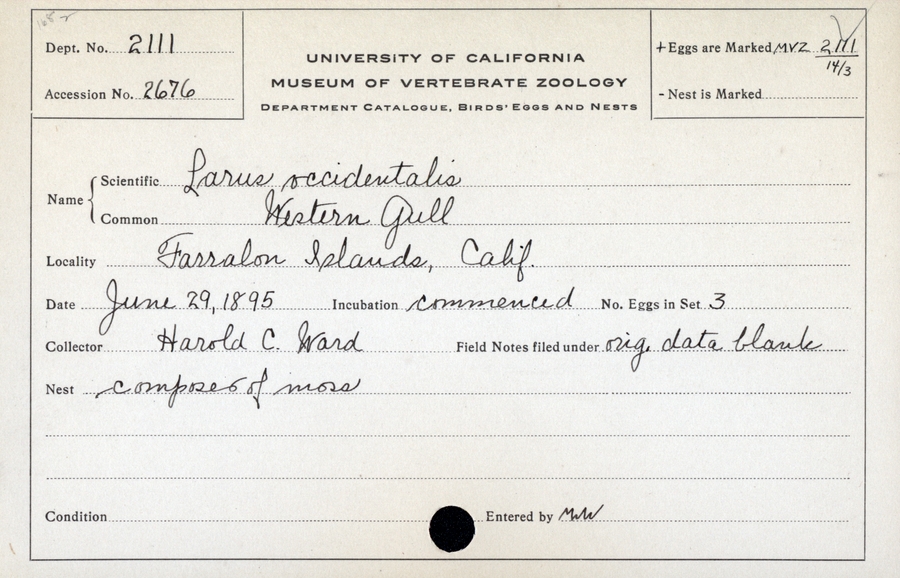 Dept. No. 2111
Accession No. 2676
UNIVERSITY OF CALIFORNIA
MUSEUM OF VERTEBRATE ZOOLOGY
DEPARTMENT CATALOGUE, BIRDS' EGGS AND NESTS
+ Eggs are Marked MVZ 2111
14/3
- Nest is Marked
Name { Scientific Larus occidentalis
Common Western Gull
Locality Farralon Islands, Calif.
Date June 29, 1895 Incubation commenced No. Eggs in Set 3
Collector Harold C. Ward Field Notes filed under orig. data blank
Nest composed of moss
Condition Entered by